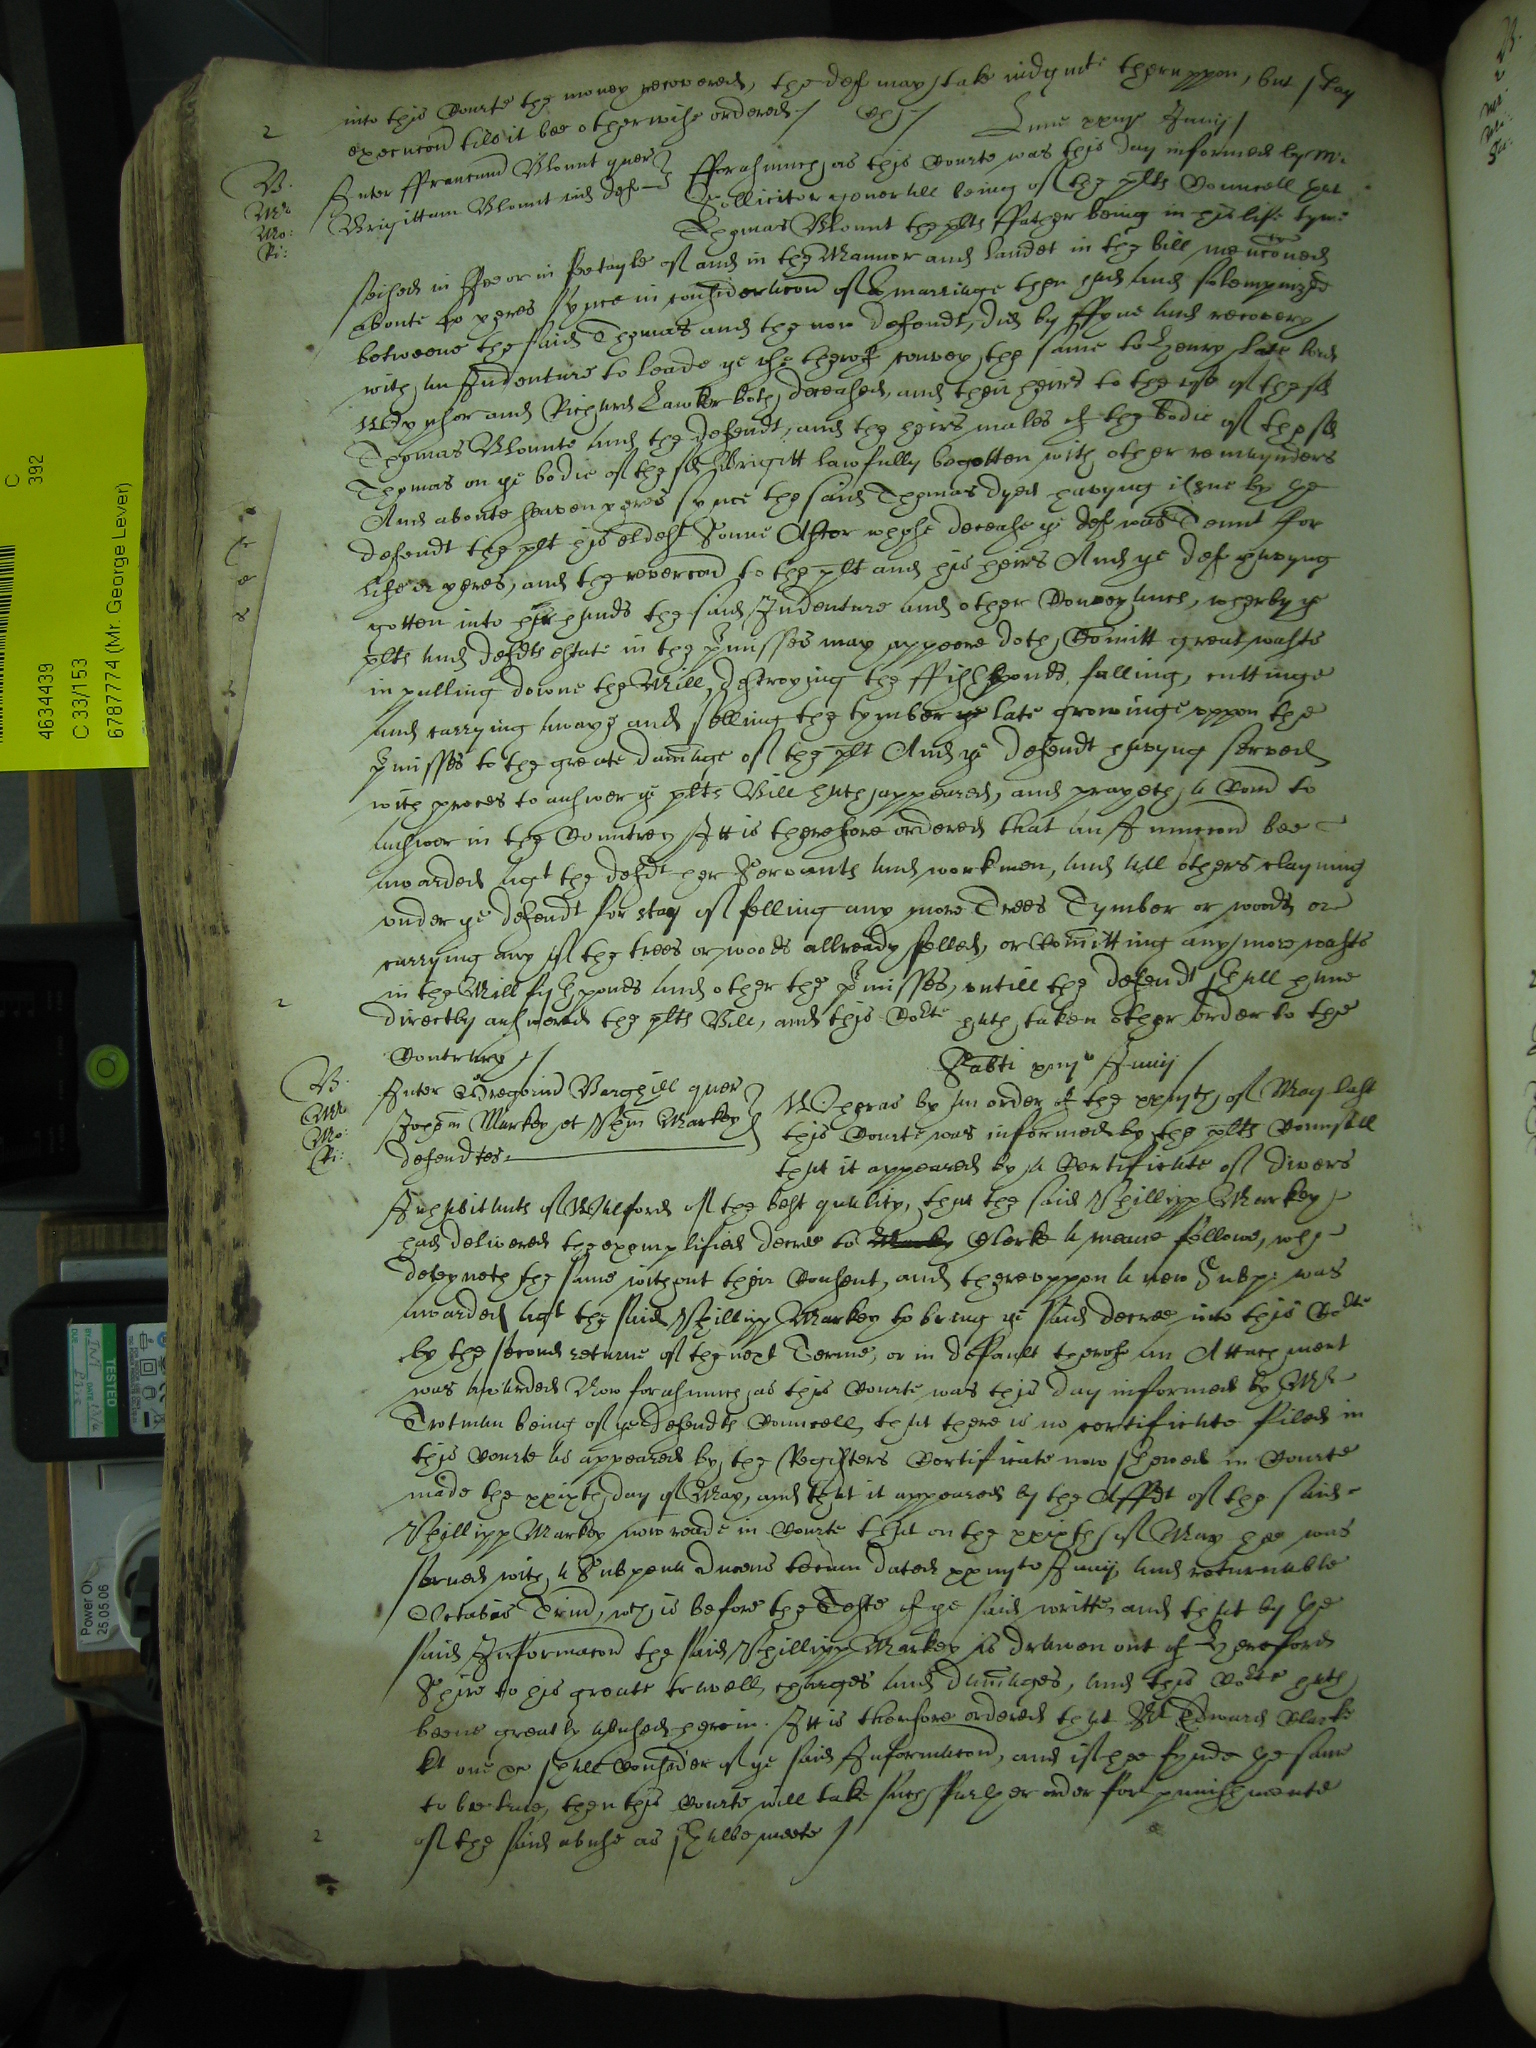 into this Courte the money recovered, the def may take iudgmt theruppon, but stay
execucon till it bee otherwise ordered /
Lune Junij /
B.
Mr
Mo:
Ri:
Inter Ffranciscum Blount quer
Brigittam Blount vid def
Fforasmuch as this Courte was this day informed by Mr
Sollicitor generall being of the plts Councell that
Thomas Blount the plts ffather being in his life tyme
seised in Ffee or in feetayle of and in the Mannor and landes in the bill menconed
aboute 40 yeres synce in consideracon of a marriage then had and solempnized
betweene the said Thomas and the now defendt, did by ffyne and recovery
with an Indenture to leade ye use therof convey the same to Henry late lord
Wyndsor and Richard Lawker both deceased, and their heirs to the use of the sd
Thomas Blounte and the defendt, and the heirs males of the bodie of the sd
Thomas on ye bodie of the sd Brigitt lawfully begotten with other remaynders
And aboute seaven yeres synce the said Thomas dyed having issue by ye
defendt the plt his eldest Sonne After whose decease ye def was Tennt for
life yeres, and the revercon to the plt and his heirs And ye def having
gotten into her hands the said Indenture and other Conveyance, wherby ye
plts and defdts estate in the pmisses may appeere doth Comitt great wasts
in pulling downe the Mill, destroying the ffishponds, falling, cuttinge
and carrying awaye and selling the tymber late growinge uppon the
pmisses to the greate damage of the plt And ye defendt having served
with proces to answer ye plts Bill hath appeared, and prayeth a Comd to
answer in the Countrey It is therefore ordered that an Iniuncon bee
awarded agt the defdt her Servants and workmen, and all others clayming
under ye defendt for stay of felling any more Trees Tymber or woods or
carrying any of the trees or woods allready felled, or Comitting any more wasts
in the Mill fishponds and other the pmisses, untill the defendt shall have
directly answered the plts Bill, and this Courte hath taken other order to the
Contrary /
Sabti Junij /
B.
Mr
Mo:
Ri:
Inter Gregorium Barghill quer
Johem Markey et Phm Markey
defendtes
Wheras by an order of the of May last
this Courte was informed by the plts Counsell
that it appeared by a Certificate of divers
Inhabitants of Walford of the best quality, that the said Phillipp Markey
had delivered the exemplified decree to Clerke a meane fellowe, who
deteyneth the same without their Consent, and thereuppon a new Subp: was
awarded agt the said Phillipp Markey to bring ye said decree into this Courte
by the second returne of the next Terme, or in default therof an Attachment
was awarded Now forasmuch as this Courte was this day informed by Mr
Trotman being of ye defendts Councell, that there is no certificate filed in
this Courte as appeared by the Registers Certificate now shewed in Courte
made the xxixth day of May, and that it appeared by the Affdt of the said
Phillipp Markey now reade in Courte that on the xxixth of May hee was
served with a Subpena Ducens tecum dated Junij, and returnable
Octabis Trin, wch is before the Teste of ye said writte, and that by ye
said Informacon the said Phillipp Markey is drawen out of Hereford
Shire to his greate travell, charges and damages, and this Courte hath
beene greatly abused herein. It is therfore ordered that Sr Edward Clarke
kt one &c shall Consider of ye said Informacon, and if hee fynde ye same
to be true, then this Courte will take such further order for punishmente
of the said abuse as shalbe meete /
C
392
4634439
C 33/153
67877774 (Mr. George Lever)
TESTED
Power Of
25 05 06